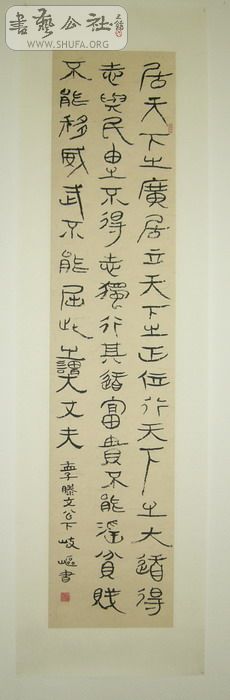 書藝公社
WWW.SHUFA.ORG
居天下之廣居立天下之正位行天下之大道得
志與民由之不得志獨行其道富貴不能淫貧賤
不能移威武不能屈此之謂大丈夫
孟子滕文公下岐嶇書